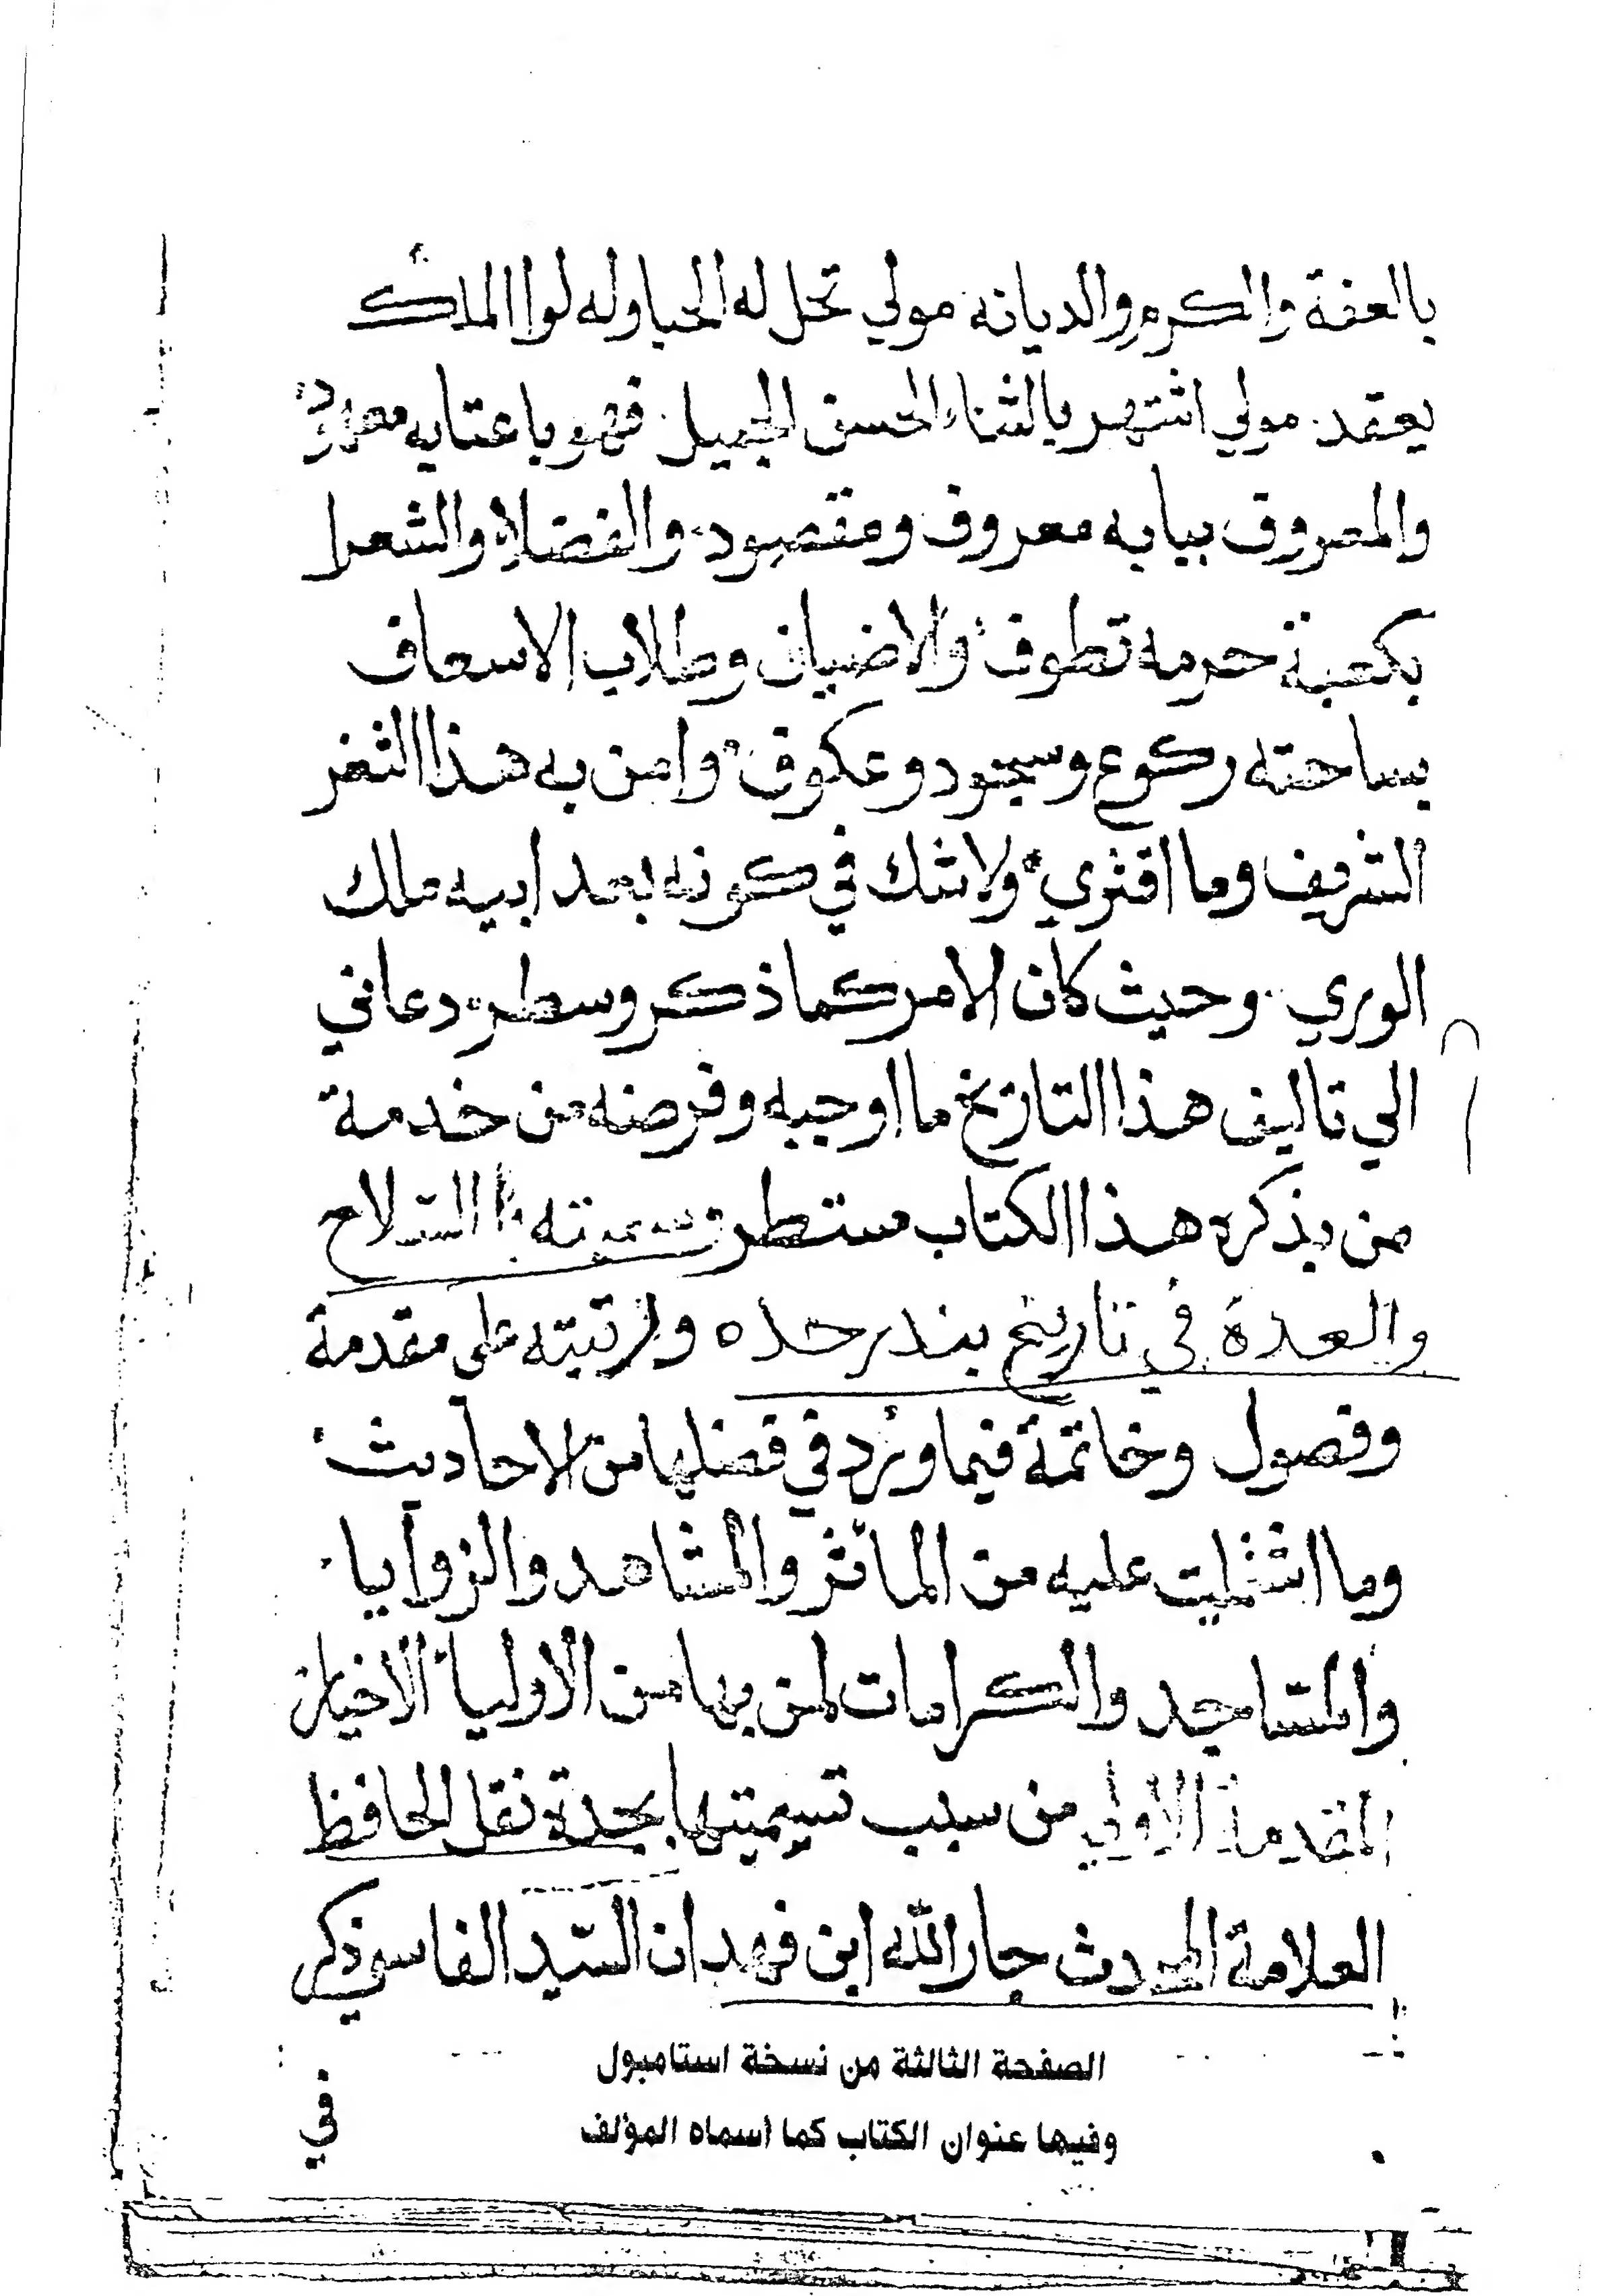 بالعفة والكرم والديانه مولي تحل له الحبا وله لوا الملك
يعقد. مولي اشتهر بالثناء الحسن الجميل. فهو باعتابه
والمعروف ببابه معروف ومقصود. والفضلاء والشعرا
بكعبة حرمه تطوف والاضياف وطلاب الاسعاف
بساحته ركوع وسجود وعكوف وامن به هذا الثغر
الشريف وما اقثري ولا شك في كونه بعد ابيه ملك
الوري. وحيث كان الامر كما ذكر وسطر. دعاني
الي تاليف هذا التاريخ ما اوجبه وفرضه من خدمة
من بذكره هذا الكتاب مستطر وسميته السّلاح
والعدة في تاريخ بندر جده ورتبته على مقدمة
وفصول وخاتمة فيما ورد في فضلها من الاحاديث
وما اشتملت عليه من المآثر والمشاهد والزوايا
والمساجد والكرامات لمن بها من الاوليا الاخيار
المقدمة الاولي من سبب تسميتها بجدة نقل الحافظ
العلامة المحدث جار الله ابن فهد ان السّيد الفاسي ذكر
الصفحة الثالثة من نسخة استامبول
وفيها عنوان الكتاب كما أسماه المؤلف
في